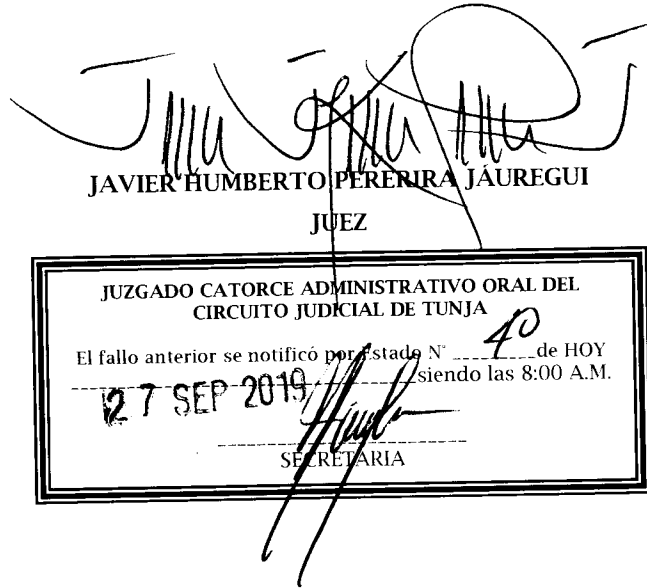 JAVIER HUMBERTO PERERIRA JÁUREGUI
JUEZ
JUZGADO CATORCE ADMINISTRATIVO ORAL DEL
CIRCUITO JUDICIAL DE TUNJA
El fallo anterior se notificó por Estado N° 40 de HOY
27 SEP 2019 siendo las 8:00 A.M.
SECRETARIA